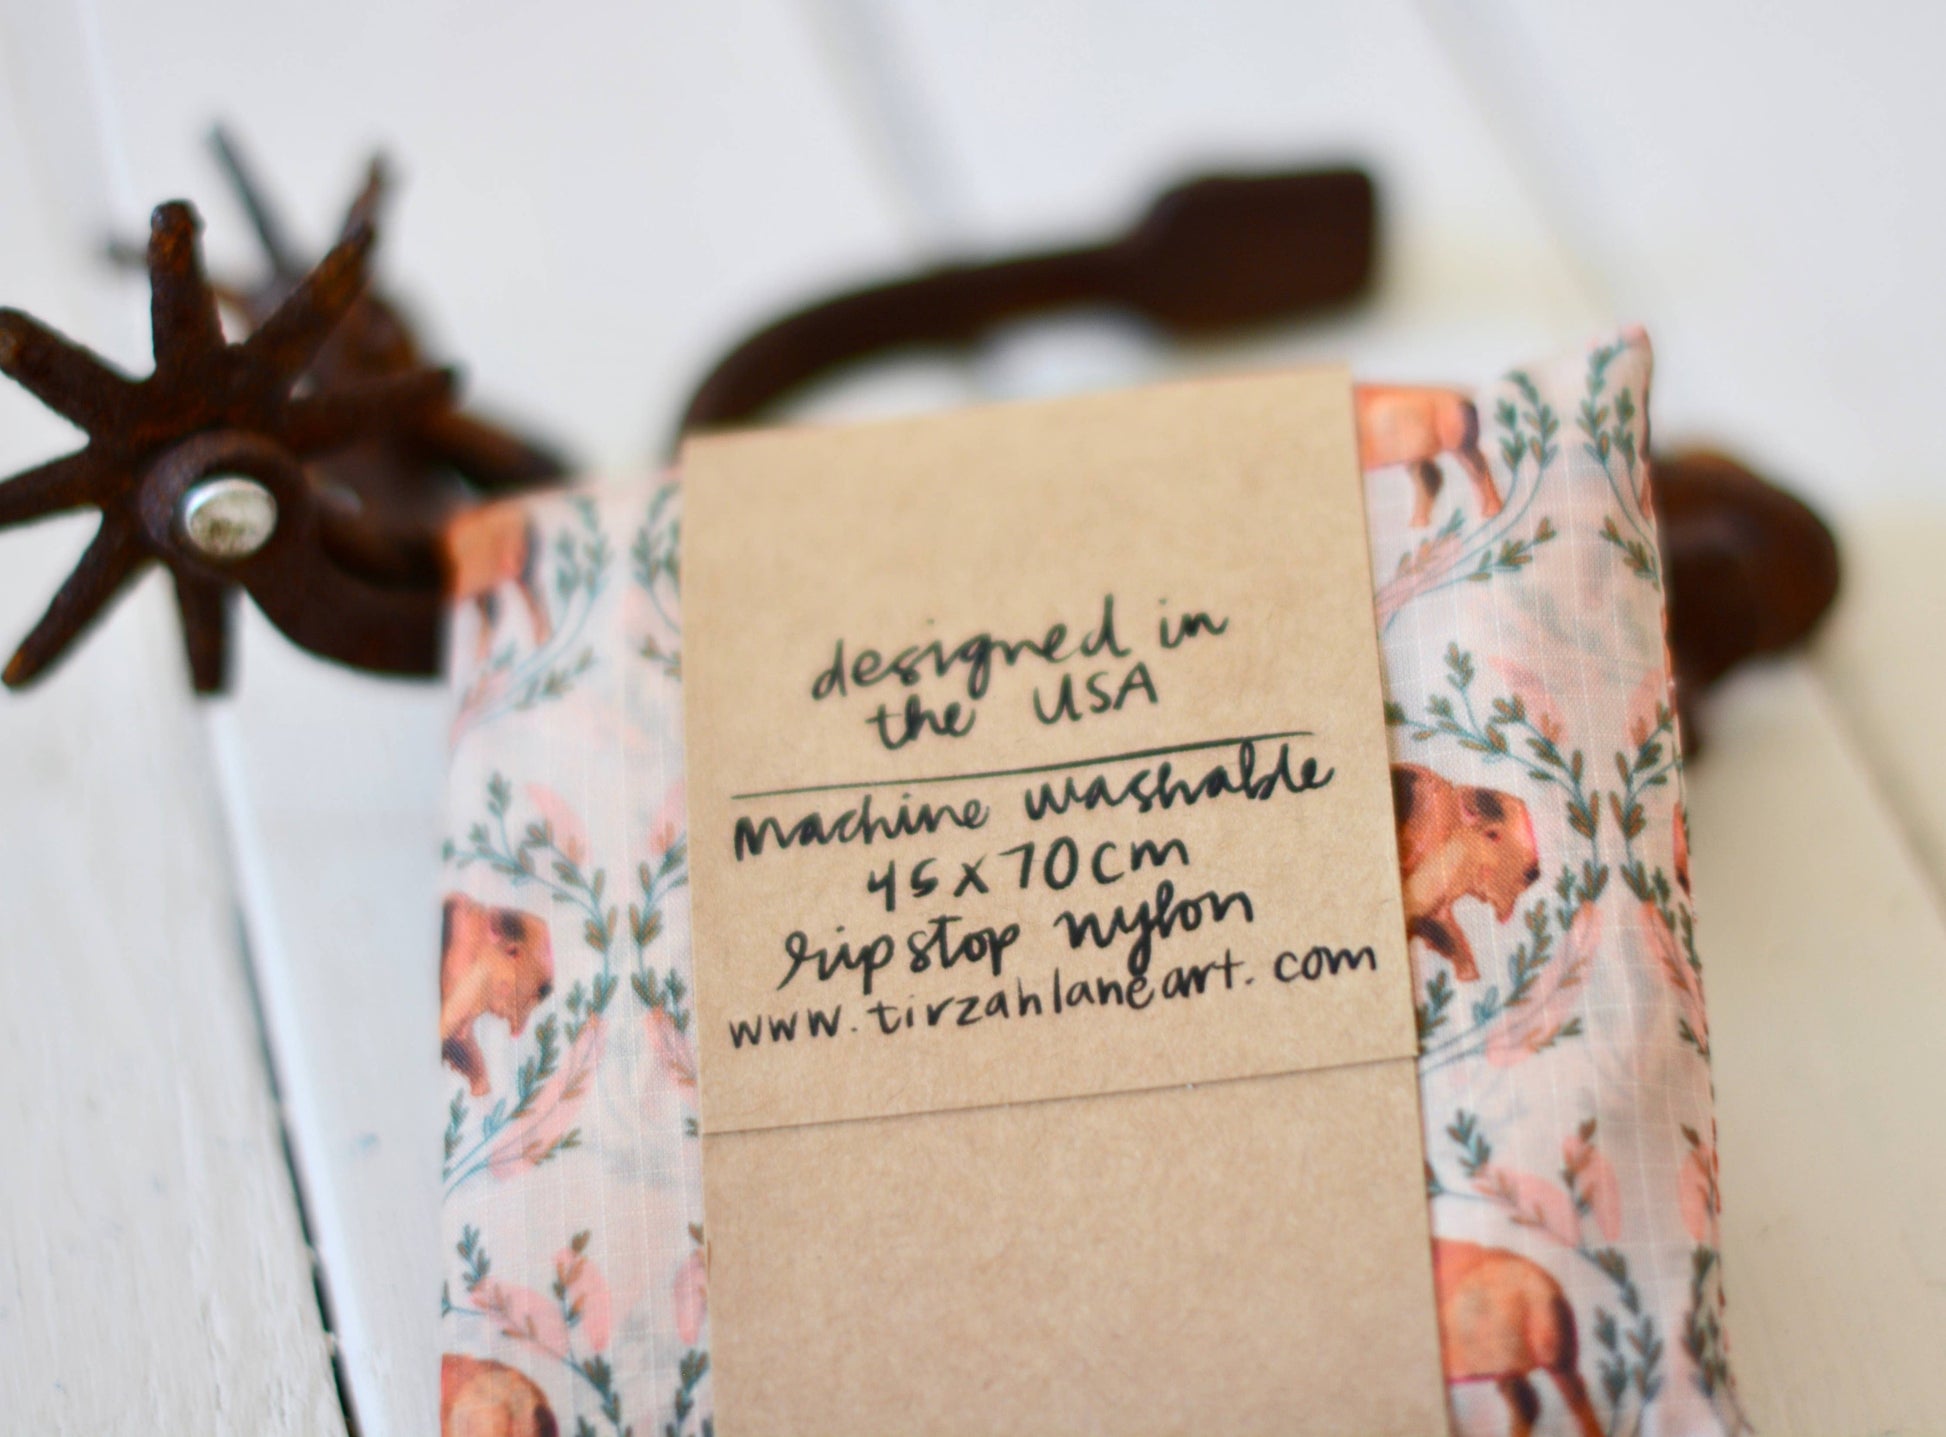 designed in
the USA
machine washable
45 x 70 cm
ripstop nylon
www.tirzahlaneart.com